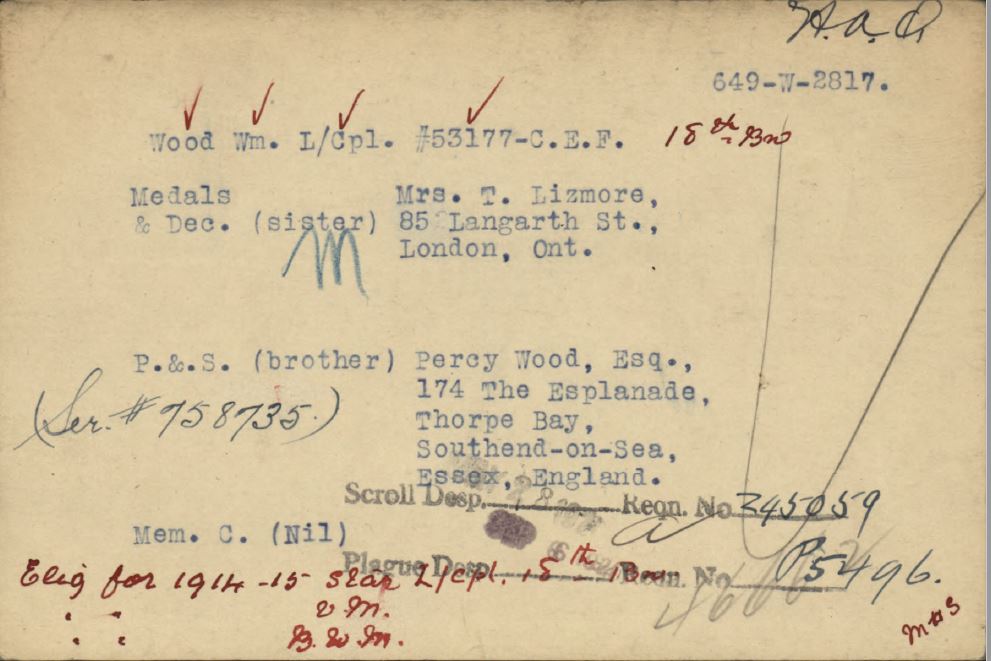 H.a.Q
649-W-2817.
Wood Wm. L/Cpl. #53177-C.E.F. 18th Bn
Medals Mrs. T. Lizmore,
& Dec. (sister) 85 Langarth St.,
M London, Ont.
P.&.S. (brother) Percy Wood, Esq.,
174 The Esplanade,
(Ser. # 758735.) Thorpe Bay,
Southend-on-Sea,
Essex, England.
Scroll Desp. Reqn. No 245059
Mem. C. (Nil)
Plaque Desp. Reqn. No P5496.
Elig for 1914-15 star L/cpl 18th Bn
" " V.M.
" " B.W.M.